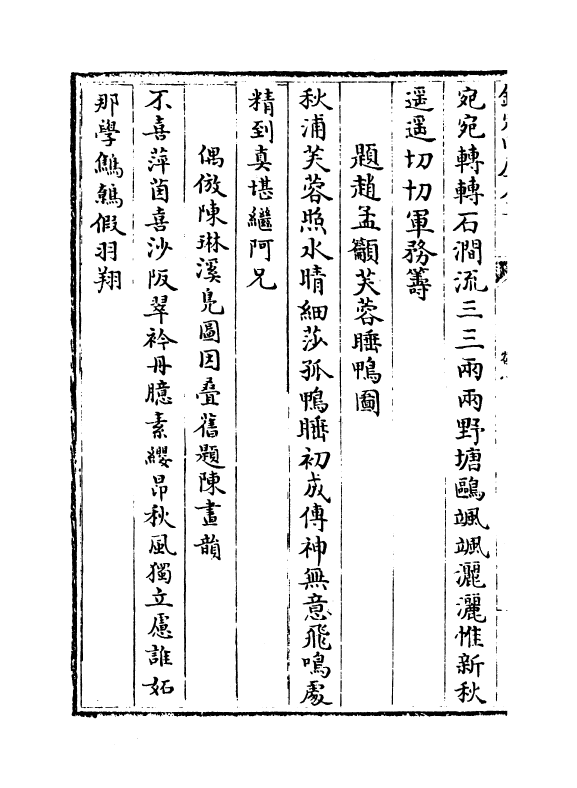 宛宛轉轉石澗流三三兩兩野塘鷗颯颯灑灑惟新秋
遥遥切切軍務籌
題趙孟籲芙蓉睡鴨圖
秋浦芙蓉照水晴細莎孤鴨睡初成傳神無意飛鳴處
精到真堪繼阿兄
偶倣陳琳溪鳧圖因疊舊題陳畫韻
不喜萍茵喜沙阪翠衿丹臆素纓昂秋風獨立慮誰妬
那學鷦鷯假羽翔